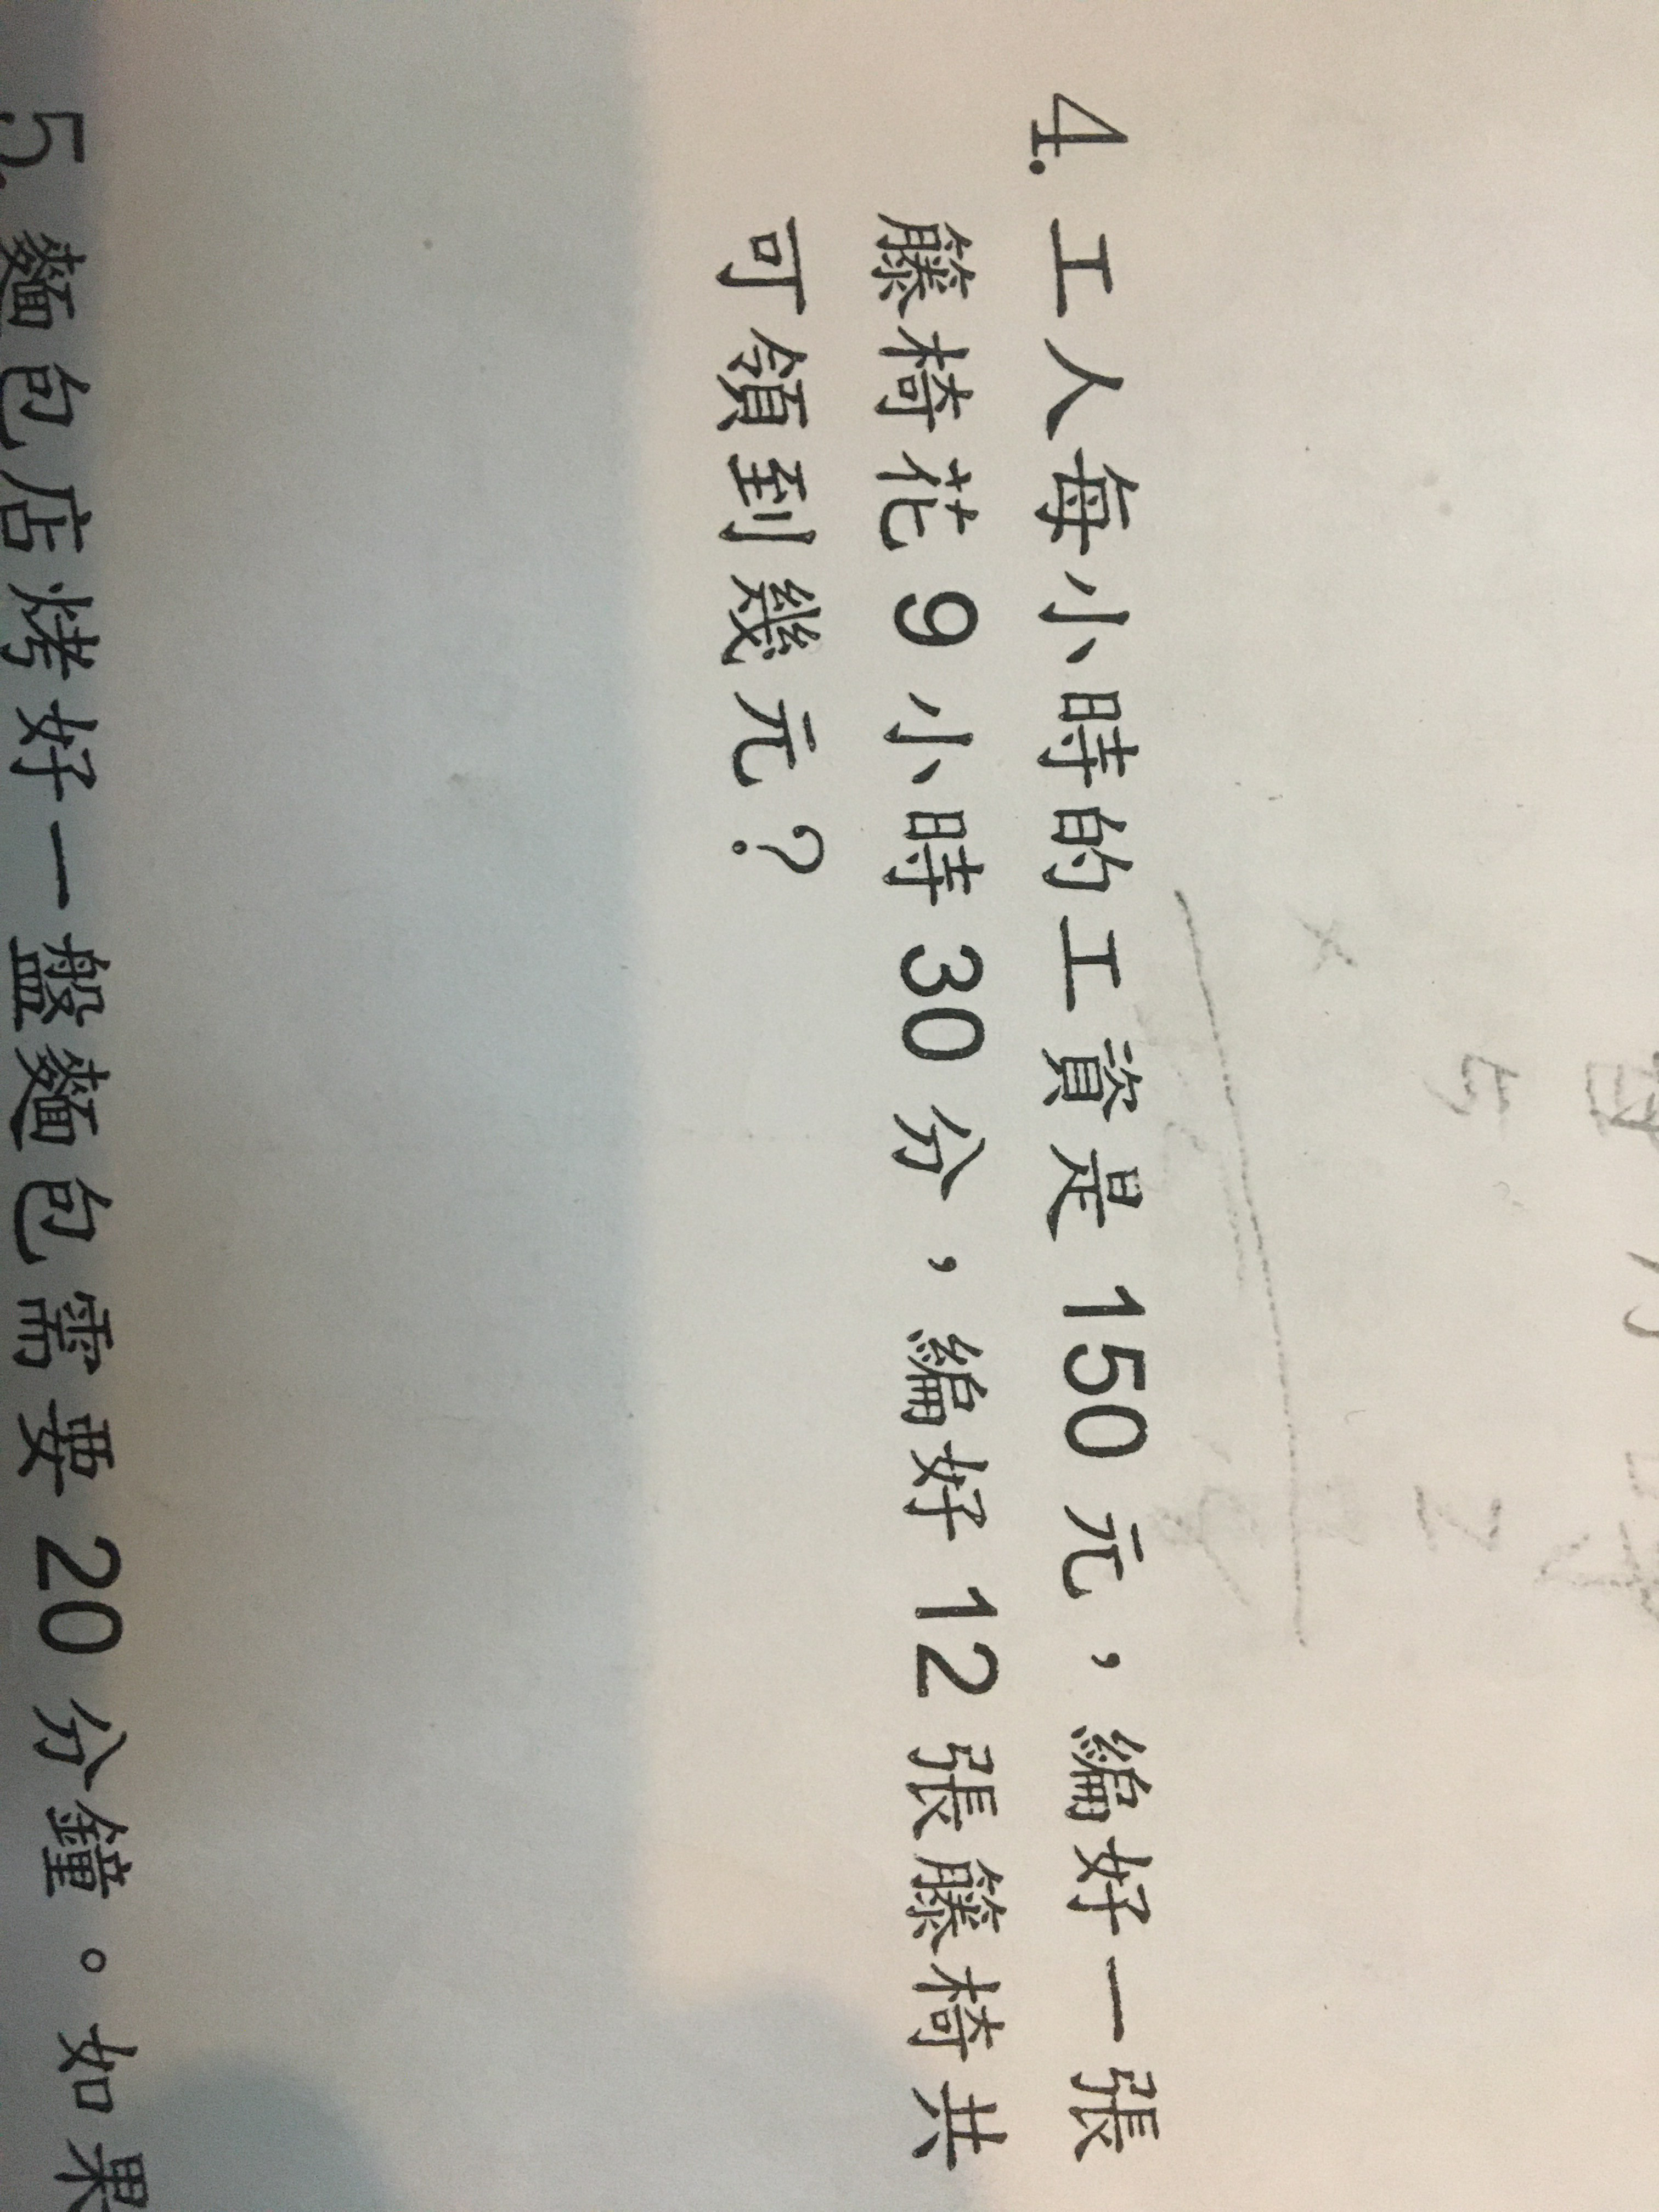 4. 工人每小時的工資是 150 元，編好一張
籐椅花 9 小時 30 分，編好 12 張籐椅共
可領到幾元？
5. 麵包店烤好一盤麵包需要 20 分鐘。如果